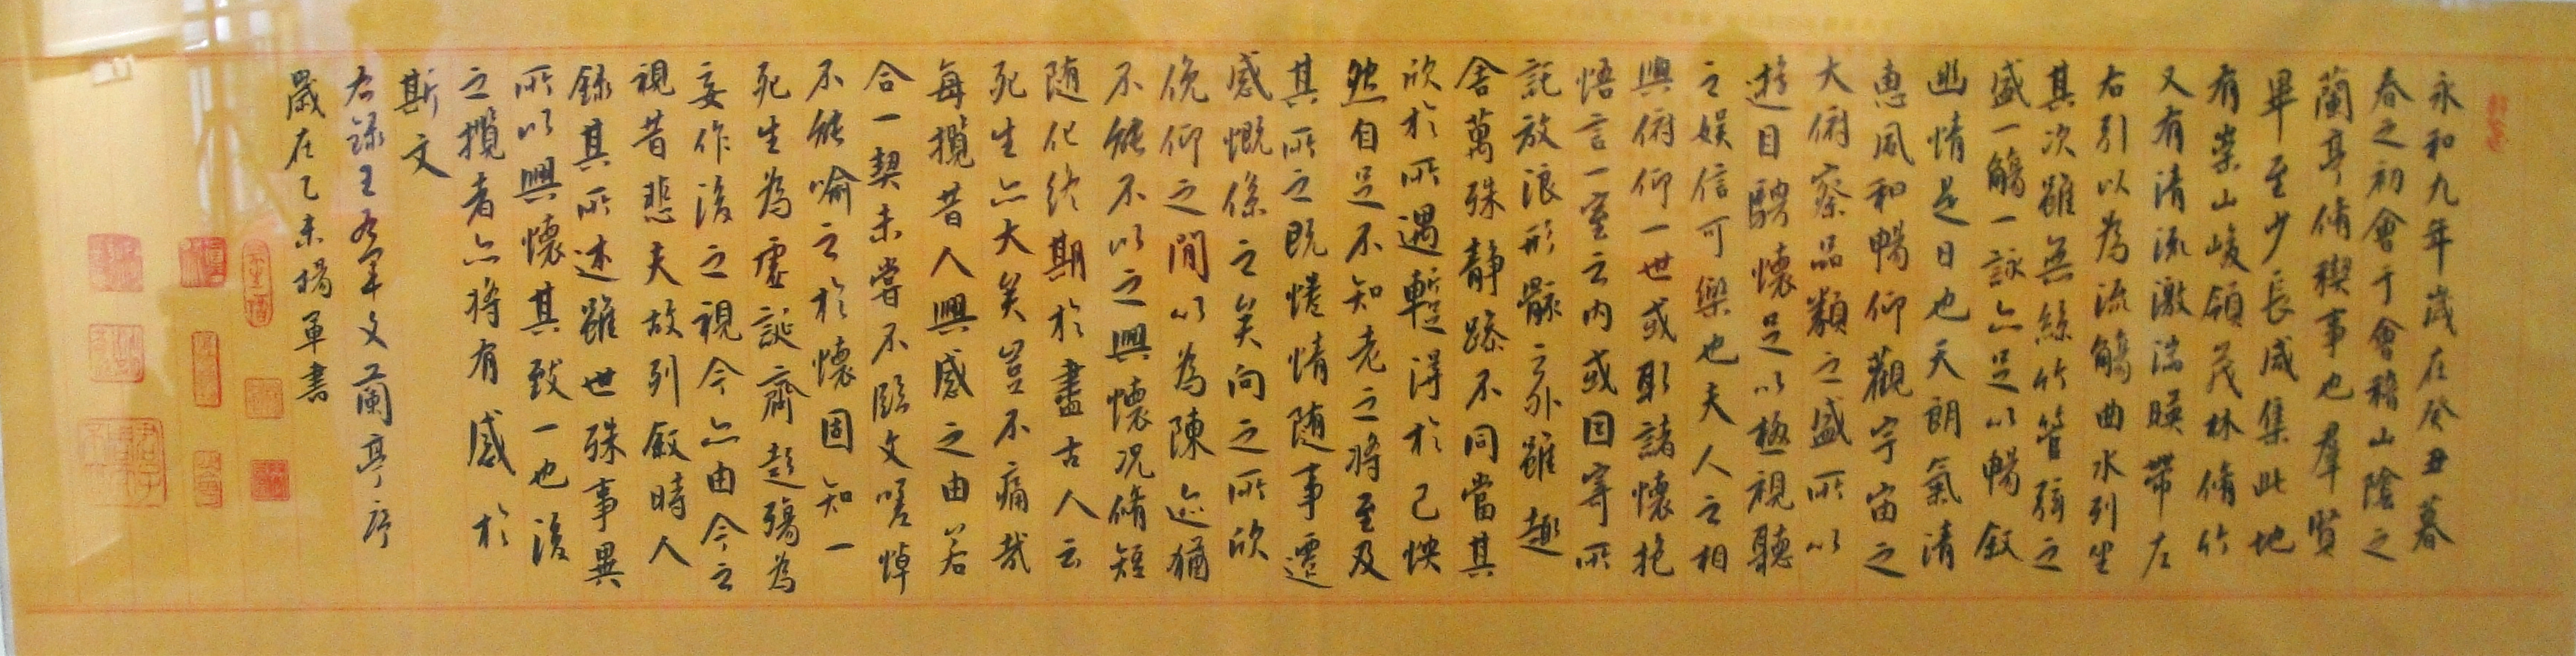 永和九年歲在癸丑暮
春之初會于會稽山陰之
蘭亭脩稧事也羣賢
畢至少長咸集此地
有崇山峻領茂林脩竹
又有清流激湍暎帶左
右引以為流觴曲水列坐
其次雖無絲竹管弦之
盛一觴一詠亦足以暢叙
幽情是日也天朗氣清
惠風和暢仰觀宇宙之
大俯察品類之盛所以
遊目騁懷足以極視聽
之娛信可樂也夫人之相
與俯仰一世或取諸懷抱
悟言一室之内或因寄所
託放浪形骸之外雖趣
舍萬殊靜躁不同當其
欣於所遇暫得於己怏
然自足不知老之將至及
其所之既惓情隨事遷
感慨係之矣向之所欣
俛仰之間以為陳迹猶
不能不以之興懷況脩短
隨化終期於盡古人云
死生亦大矣豈不痛哉
每攬昔人興感之由若
合一契未嘗不臨文嗟悼
不能喻之於懷固知一
死生為虛誕齊彭殤為
妄作後之視今亦由今之
視昔悲夫故列叙時人
錄其所述雖世殊事異
所以興懷其致一也後
之攬者亦將有感於
斯文
右录王右軍文蘭亭序
歲在乙未楊軍書